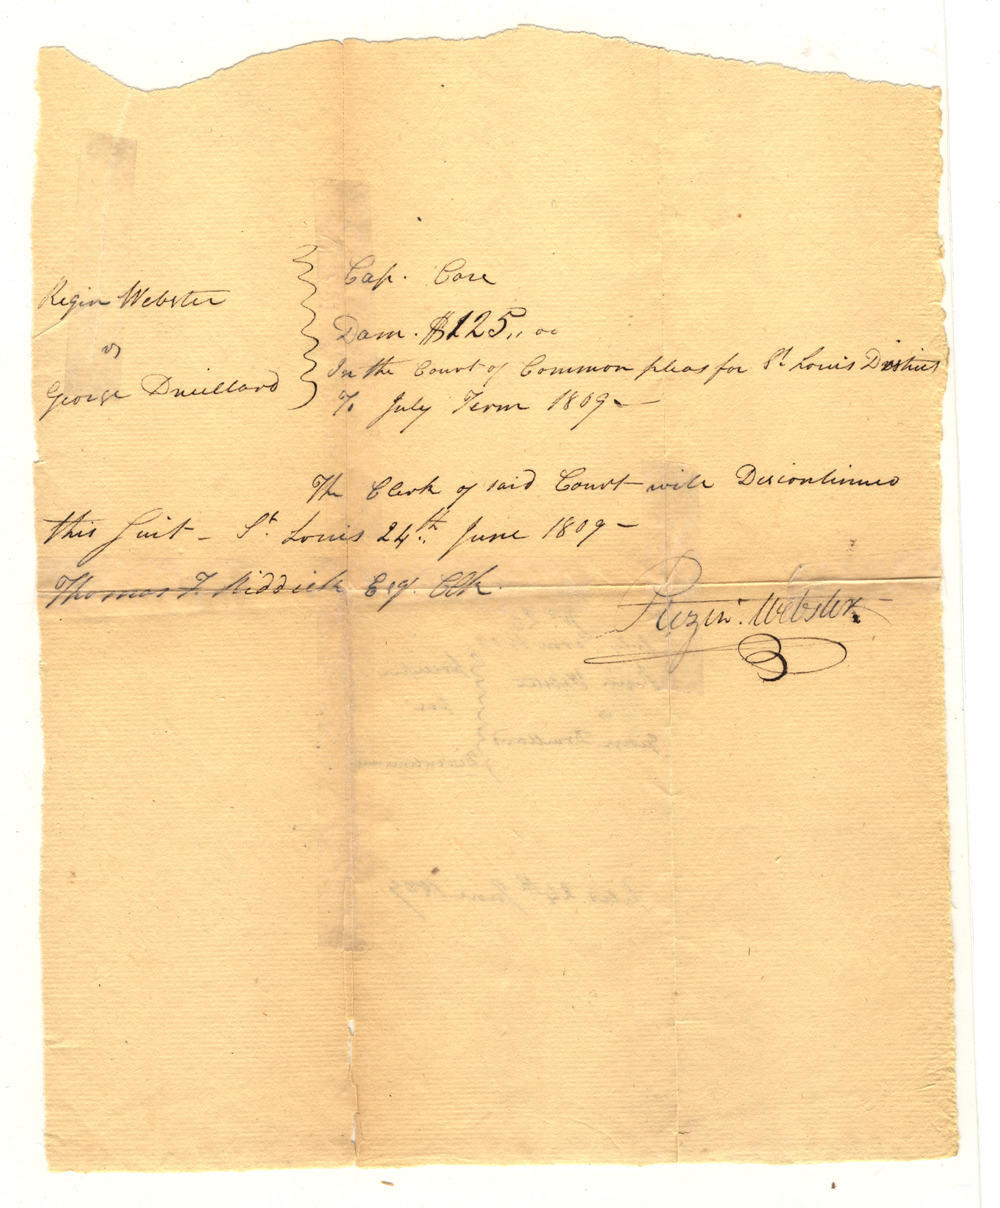 Cap. Case
Regin Webster
Dam. $125,, 00
vs
In the Court of Common pleas for St Louis District
George Druillard
To July Term 1809 —
The Clerk of said Court will Discontinued
this Suit — St. Louis 24th.. June 1809 —
Thomas F. Riddick Esq. Clk.
Rezin. Webster.
filed 24th June 1809